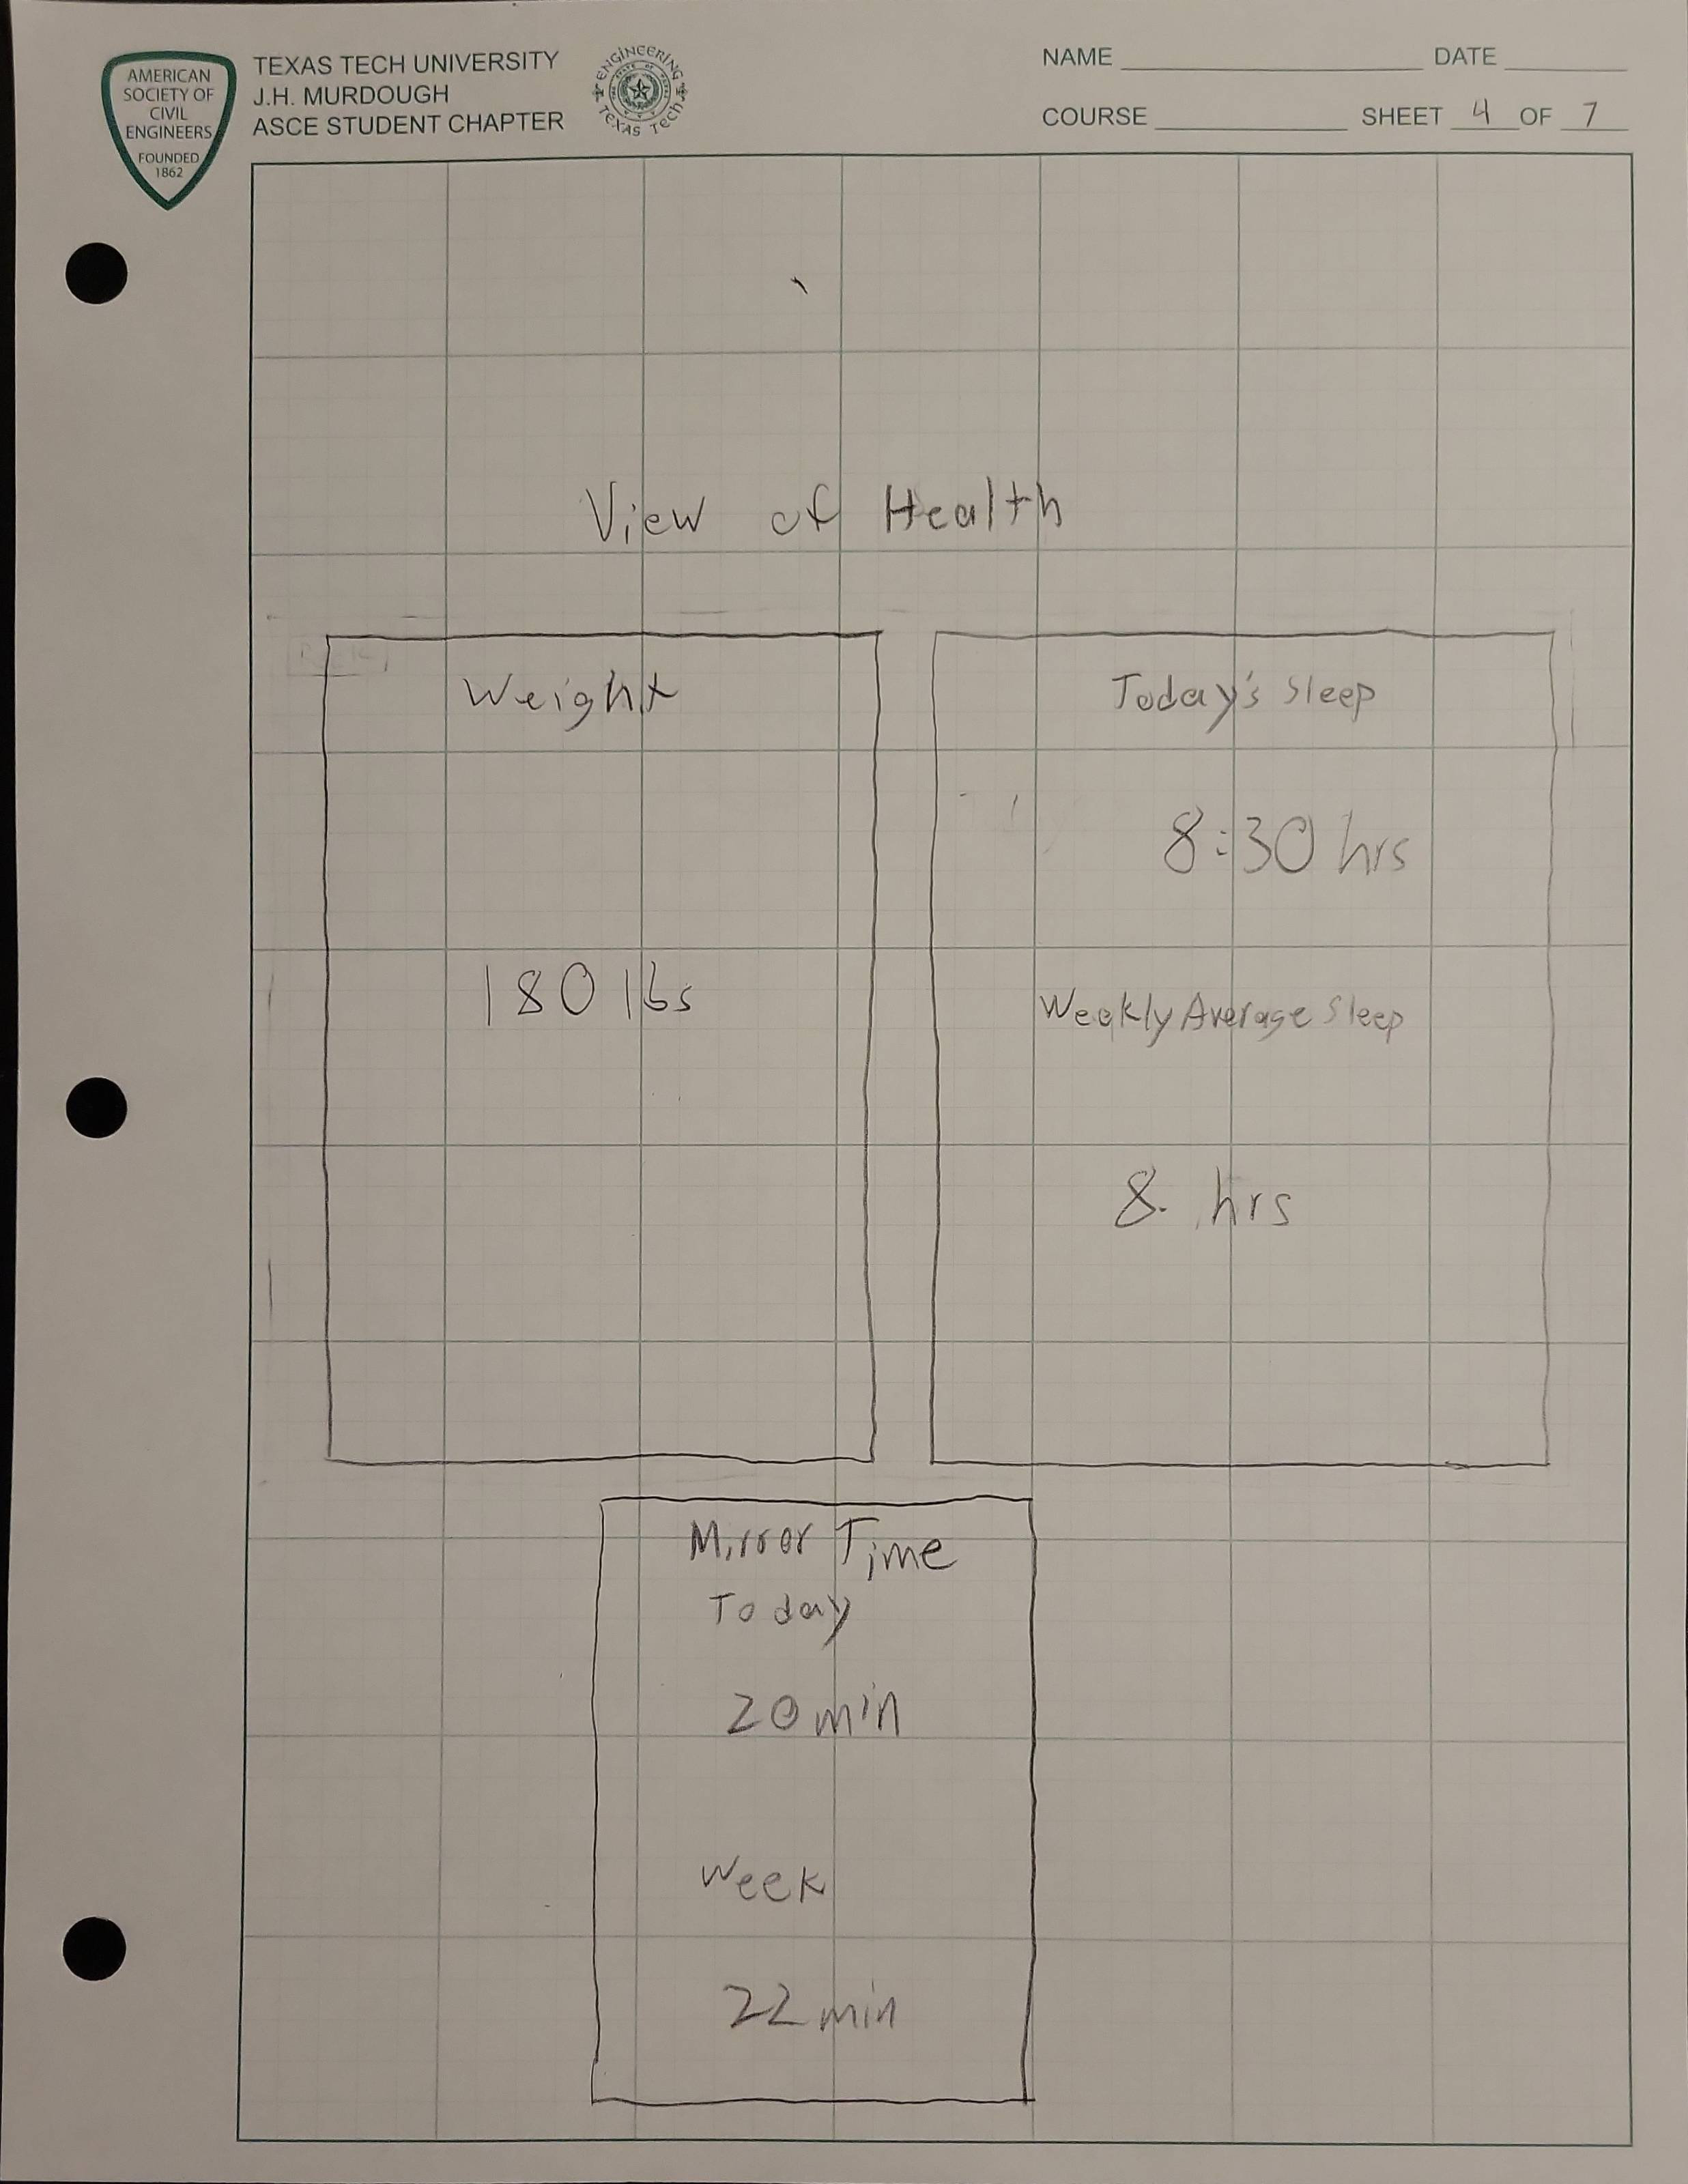 AMERICAN
SOCIETY OF
CIVIL
ENGINEERS
FOUNDED
1862
TEXAS TECH UNIVERSITY
J.H. MURDOUGH
ASCE STUDENT CHAPTER
ENGINEERING
TEXAS TECH
NAME DATE
COURSE SHEET 4 OF 7
View of Health
Weight
180 lbs
Today's Sleep
8:30 hrs
Weekly Average Sleep
8. hrs
Mirror Time
Today
20 min
Week
22 min